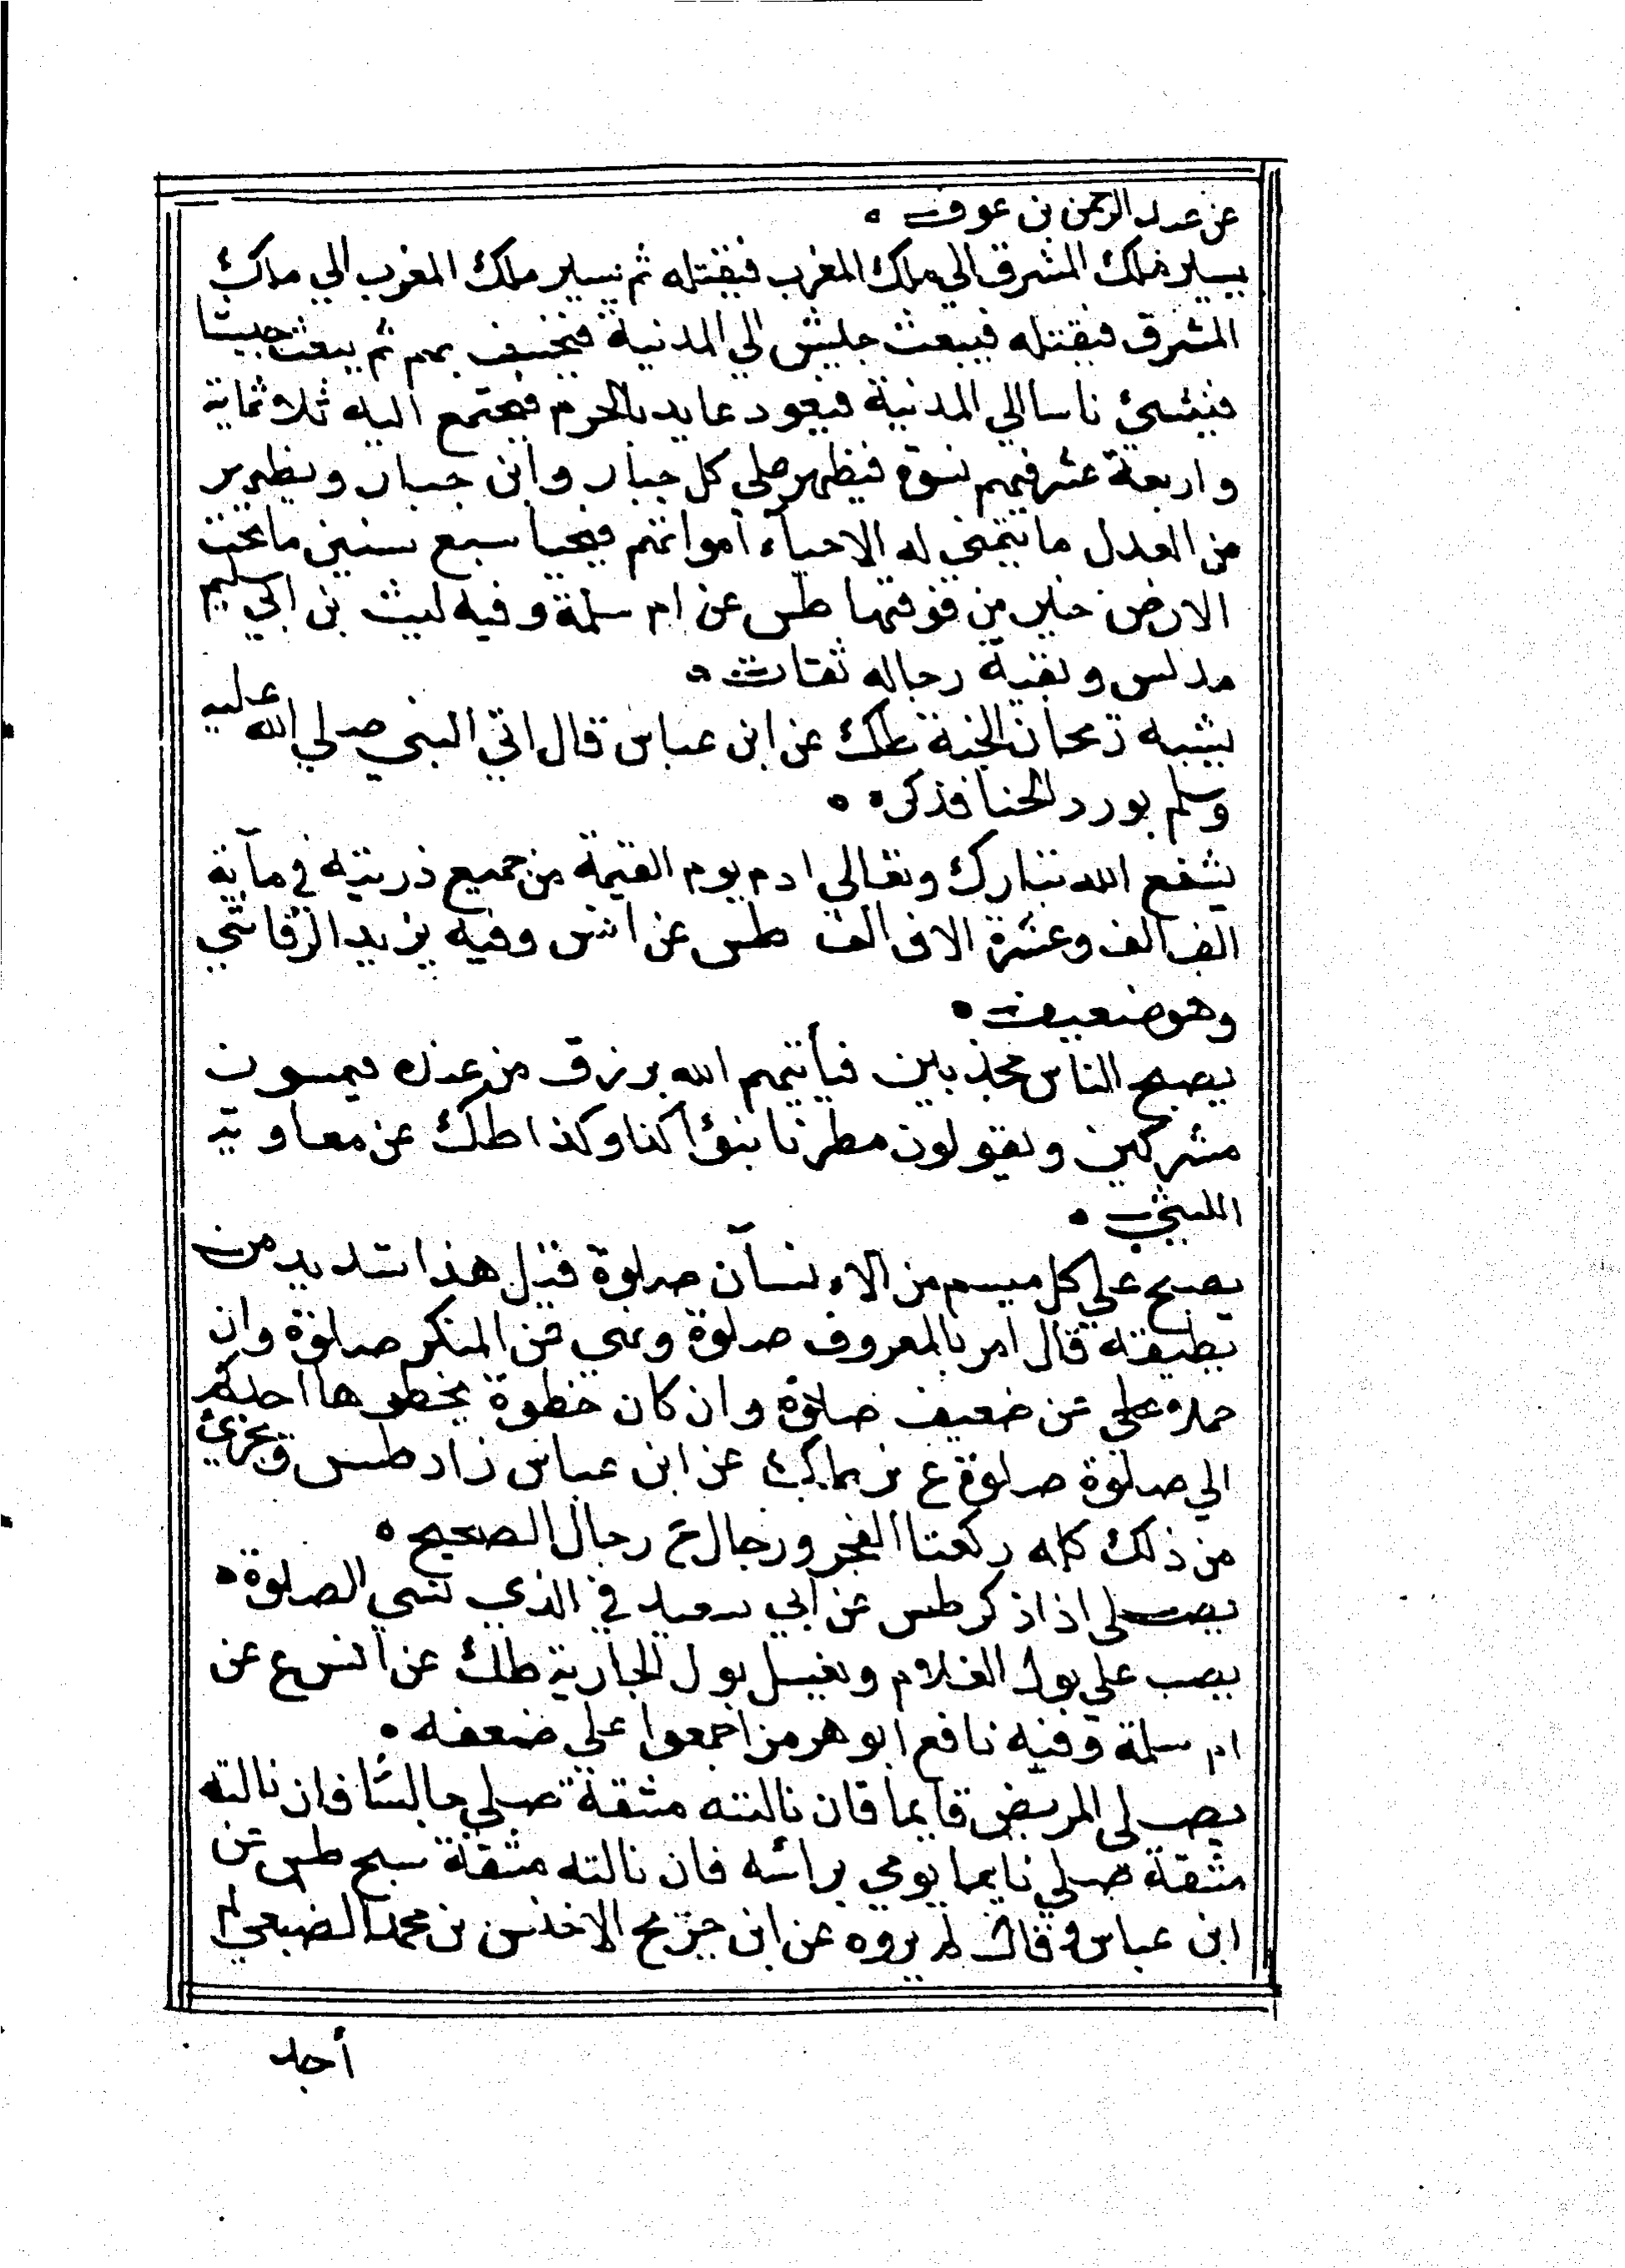 عن عبد الرحمن بن عوف ه
يسير ملك المشرق الي ملك المغرب فيقتله ثم يسير ملك المغرب الي ملك
المشرق فيقتله فيبعث جيش الي المدينة فيخسف بهم ثم يبعث جيشا
فينشئ ناسا الي المدينة فيعود عايد بالحرم فيجتمع اليه ثلاثماية
واربعة عشر فيهم نسوة فيظهر علي كل جبار وابن جبار ويظهر
من العدل ما يتمني له الاحياء امواتهم فيحيا سبع سنين ما تحت
الارض خير من فوقها طس عن ام سلمة وفيه ليث بن ابي سليم
مدلس وبقية رجاله ثقات ه
يشبه ريحان الجنة طك عن ابن عباس قال اتي النبي صلي الله عليه
وسلم بورد الحنا فذكره ه
يشفع الله تبارك وتعالي ادم يوم القيمة من جميع ذريته في مآية
الف الف وعشرة الاف الف طس عن انس وفيه يزيد الرقاشي
وهو ضعيف ه
يصبح الناس مجذبين فيأتيهم الله برزق من عنده فيمسون
مشركين ويقولون مطرنا بنؤ كذا وكذا طك عن معاوية
الليثي ه
يصبح علي كل ميسم من الاءنسآن صلوة قيل هذا شديد من
يطيقه قال امر بالمعروف صلوة ونهي عن المنكر صلوة وان
حملا علي عن ضعيف صلاة وان كان خطوة يخطوها احدكم
الي صلوة صلوة ع بز طك عن ابن عباس زاد طس ويجزئ
من ذلك كله ركعتا الفجر ورجال ع رجال الصحيح ه
يصلي اذا ذكر طس عن ابي سعيد في الذي نسي الصلوة ه
يصب علي بول الغلام ويغسل بول الجارية طك عن انس ع عن
ام سلمة وفيه نافع ابو هرمز اجمعوا علي ضعفه ه
يصلي المريض قايما فان نالته مشقة صلي جالسا فان نالته
مشقة صلي نايما يومي برأسه فان نالته مشقة سبح طس عن
ابن عباس وقال لم يروه عن ابن جريج الا خلس بن محمد الضبعي لم
أجد